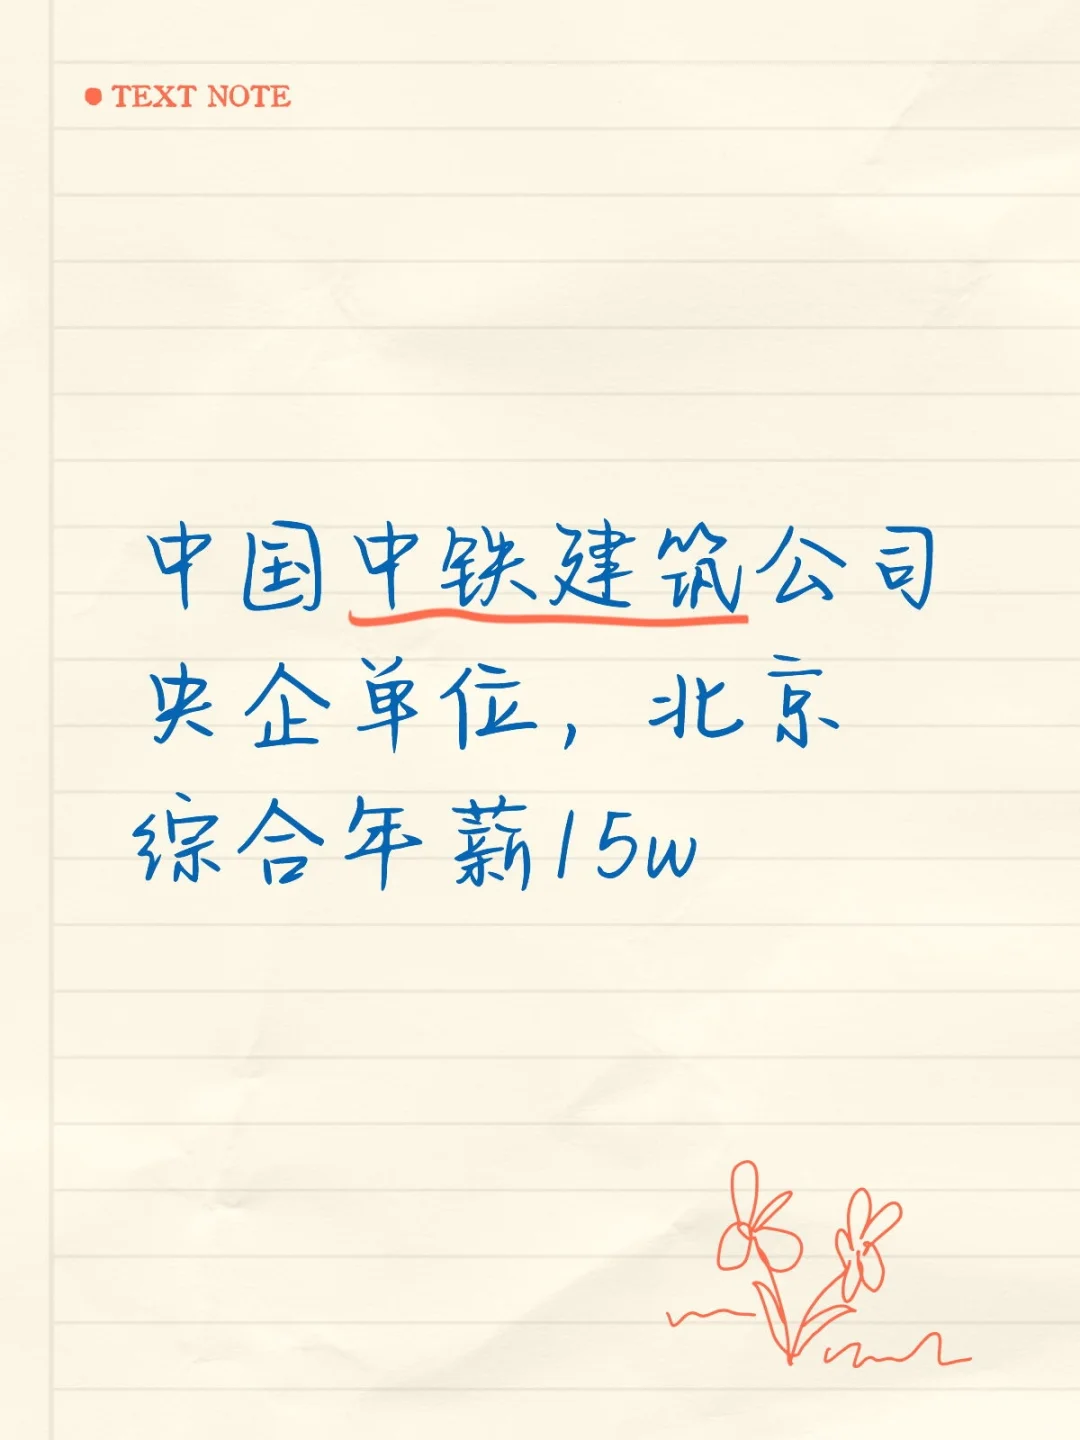 TEXT NOTE
中国中铁建筑公司
央企单位，北京
综合年薪15w